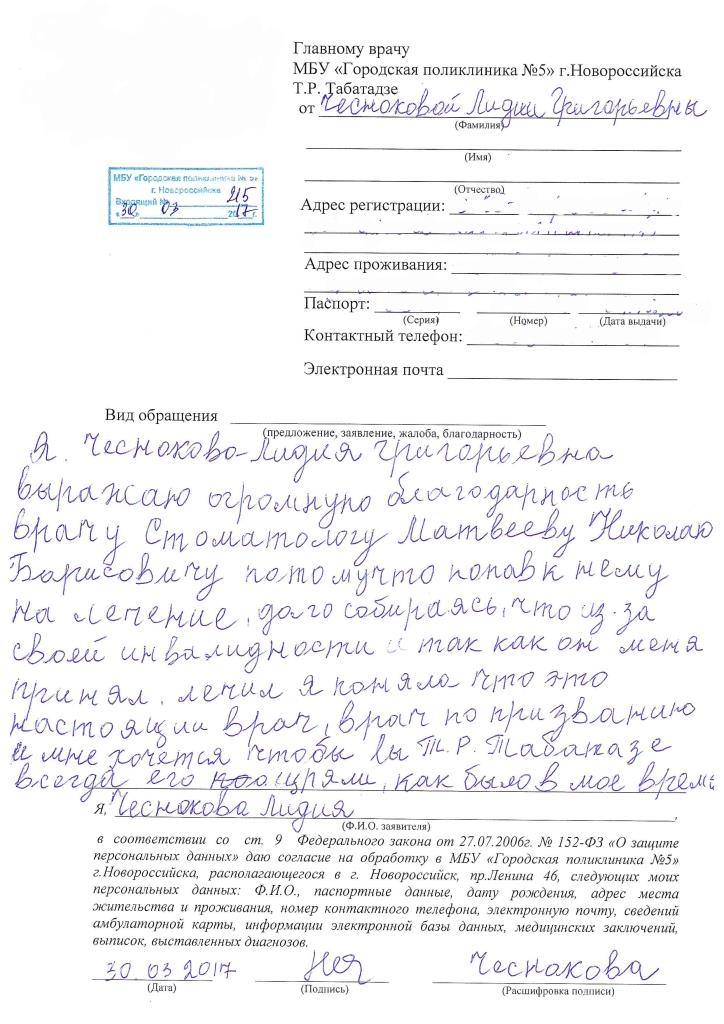 Главному врачу
МБУ «Городская поликлиника №5» г.Новороссийска
Т.Р. Табатадзе
от Чесноковой Лидии Григорьевны
(Фамилия)
(Имя)
МБУ «Городская поликлиника № 5»
г. Новороссийска
Входящий № 215
«30» 03 2017г.
(Отчество)
Адрес регистрации:
Адрес проживания:
Паспорт:
(Серия) (Номер) (Дата выдачи)
Контактный телефон:
Электронная почта
Вид обращения
(предложение, заявление, жалоба, благодарность)
Я. Чеснокова Лидия Григорьевна
выражаю огромную благодарность
врачу Стоматологу Матвееву Николаю
Борисовичу потомучто попав к нему
на лечение, долго собираясь, что из-за
своей инвалидности и так как он меня
принял, лечил я поняла что это
настоящии врач, врач по призванию
и мне хочется чтобы вы Т.Р. Табаказе
всегда его поощряли, как было в мое время
Я, Чеснокова Лидия,
(Ф.И.О. заявителя)
в соответствии со ст. 9 Федерального закона от 27.07.2006г. № 152-ФЗ «О защите
персональных данных» даю согласие на обработку в МБУ «Городская поликлиника №5»
г.Новороссийска, располагающегося в г. Новороссийск, пр.Ленина 46, следующих моих
персональных данных: Ф.И.О., паспортные данные, дату рождения, адрес места
жительства и проживания, номер контактного телефона, электронную почту, сведений
амбулаторной карты, информации электронной базы данных, медицинских заключений,
выписок, выставленных диагнозов.
30.03 2017 Чеснокова
(Дата) (Подпись) (Расшифровка подписи)